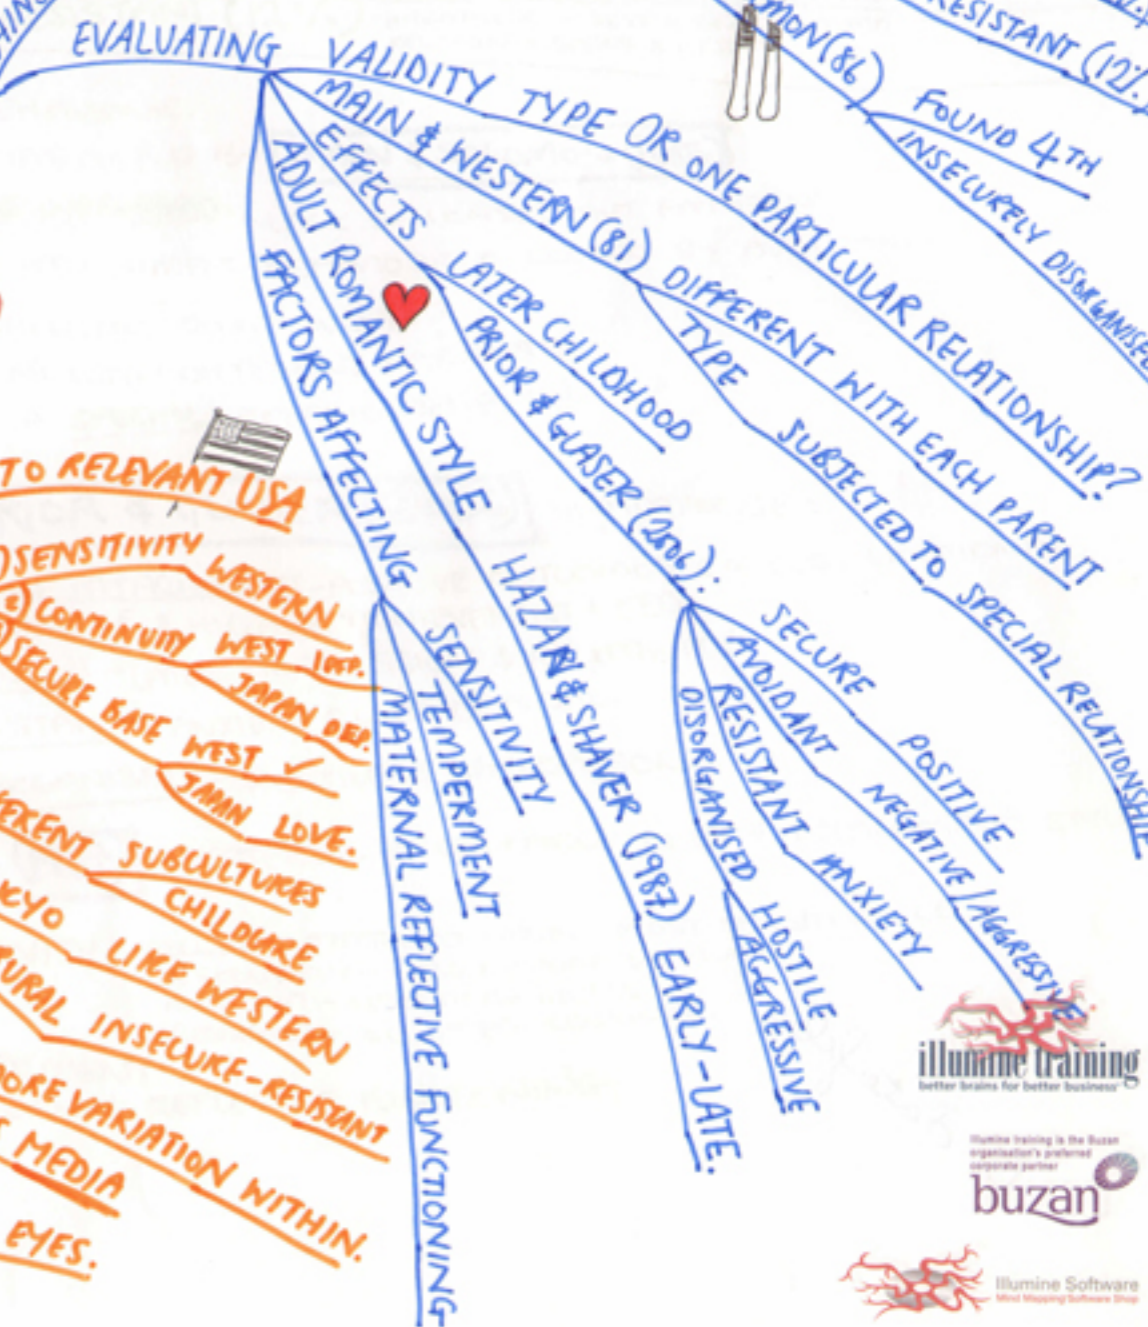 EVALUATING
VALIDITY TYPE OR ONE PARTICULAR RELATIONSHIP?
MAIN & WESTERN (81)
DIFFERENT WITH EACH PARENT
TYPE SUBJECTED TO SPECIAL RELATIONSHIP
EFFECTS
LATER CHILDHOOD
PRIOR & GLASER (2006):
SECURE POSITIVE
AVOIDANT NEGATIVE/AGGRESSIVE
RESISTANT ANXIETY
DISORGANISED HOSTILE
AGGRESSIVE
ADULT ROMANTIC STYLE HAZAN & SHAVER (1987) EARLY-LATE.
FACTORS AFFECTING
SENSITIVITY
TEMPERMENT
MATERNAL REFLECTIVE FUNCTIONING
MON(86)
FOUND 4TH
INSECURELY DISORGANISED
RESISTANT (12%
TO RELEVANT USA
SENSITIVITY WESTERN
CONTINUITY WEST INDEP.
JAPAN DEP.
SECURE BASE WEST ✓
JAPAN LOVE.
FERENT SUBCULTURES
CHILDCARE
KYO LIKE WESTERN
URAL INSECURE-RESISTANT
MORE VARIATION WITHIN.
MEDIA
EYES.
illumine training
better brains for better business
Illumine training is the Buzan
organisation's preferred
corporate partner
buzan
Illumine Software
Mind Mapping Software Shop